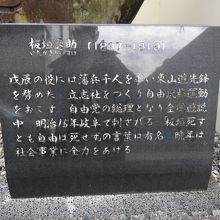 板垣退助 (1837-1919)
いたがきたいすけ
戊辰の役には藩兵千人を率い東山道先鋒
を務めた 立志社をつくり自由民権運動
をおこす 自由党の総理となり全国遊説
中 明治15年岐阜で刺さる 板垣死す
とも自由は死せずの言葉は有名 晩年は
社会事業に全力をあげる